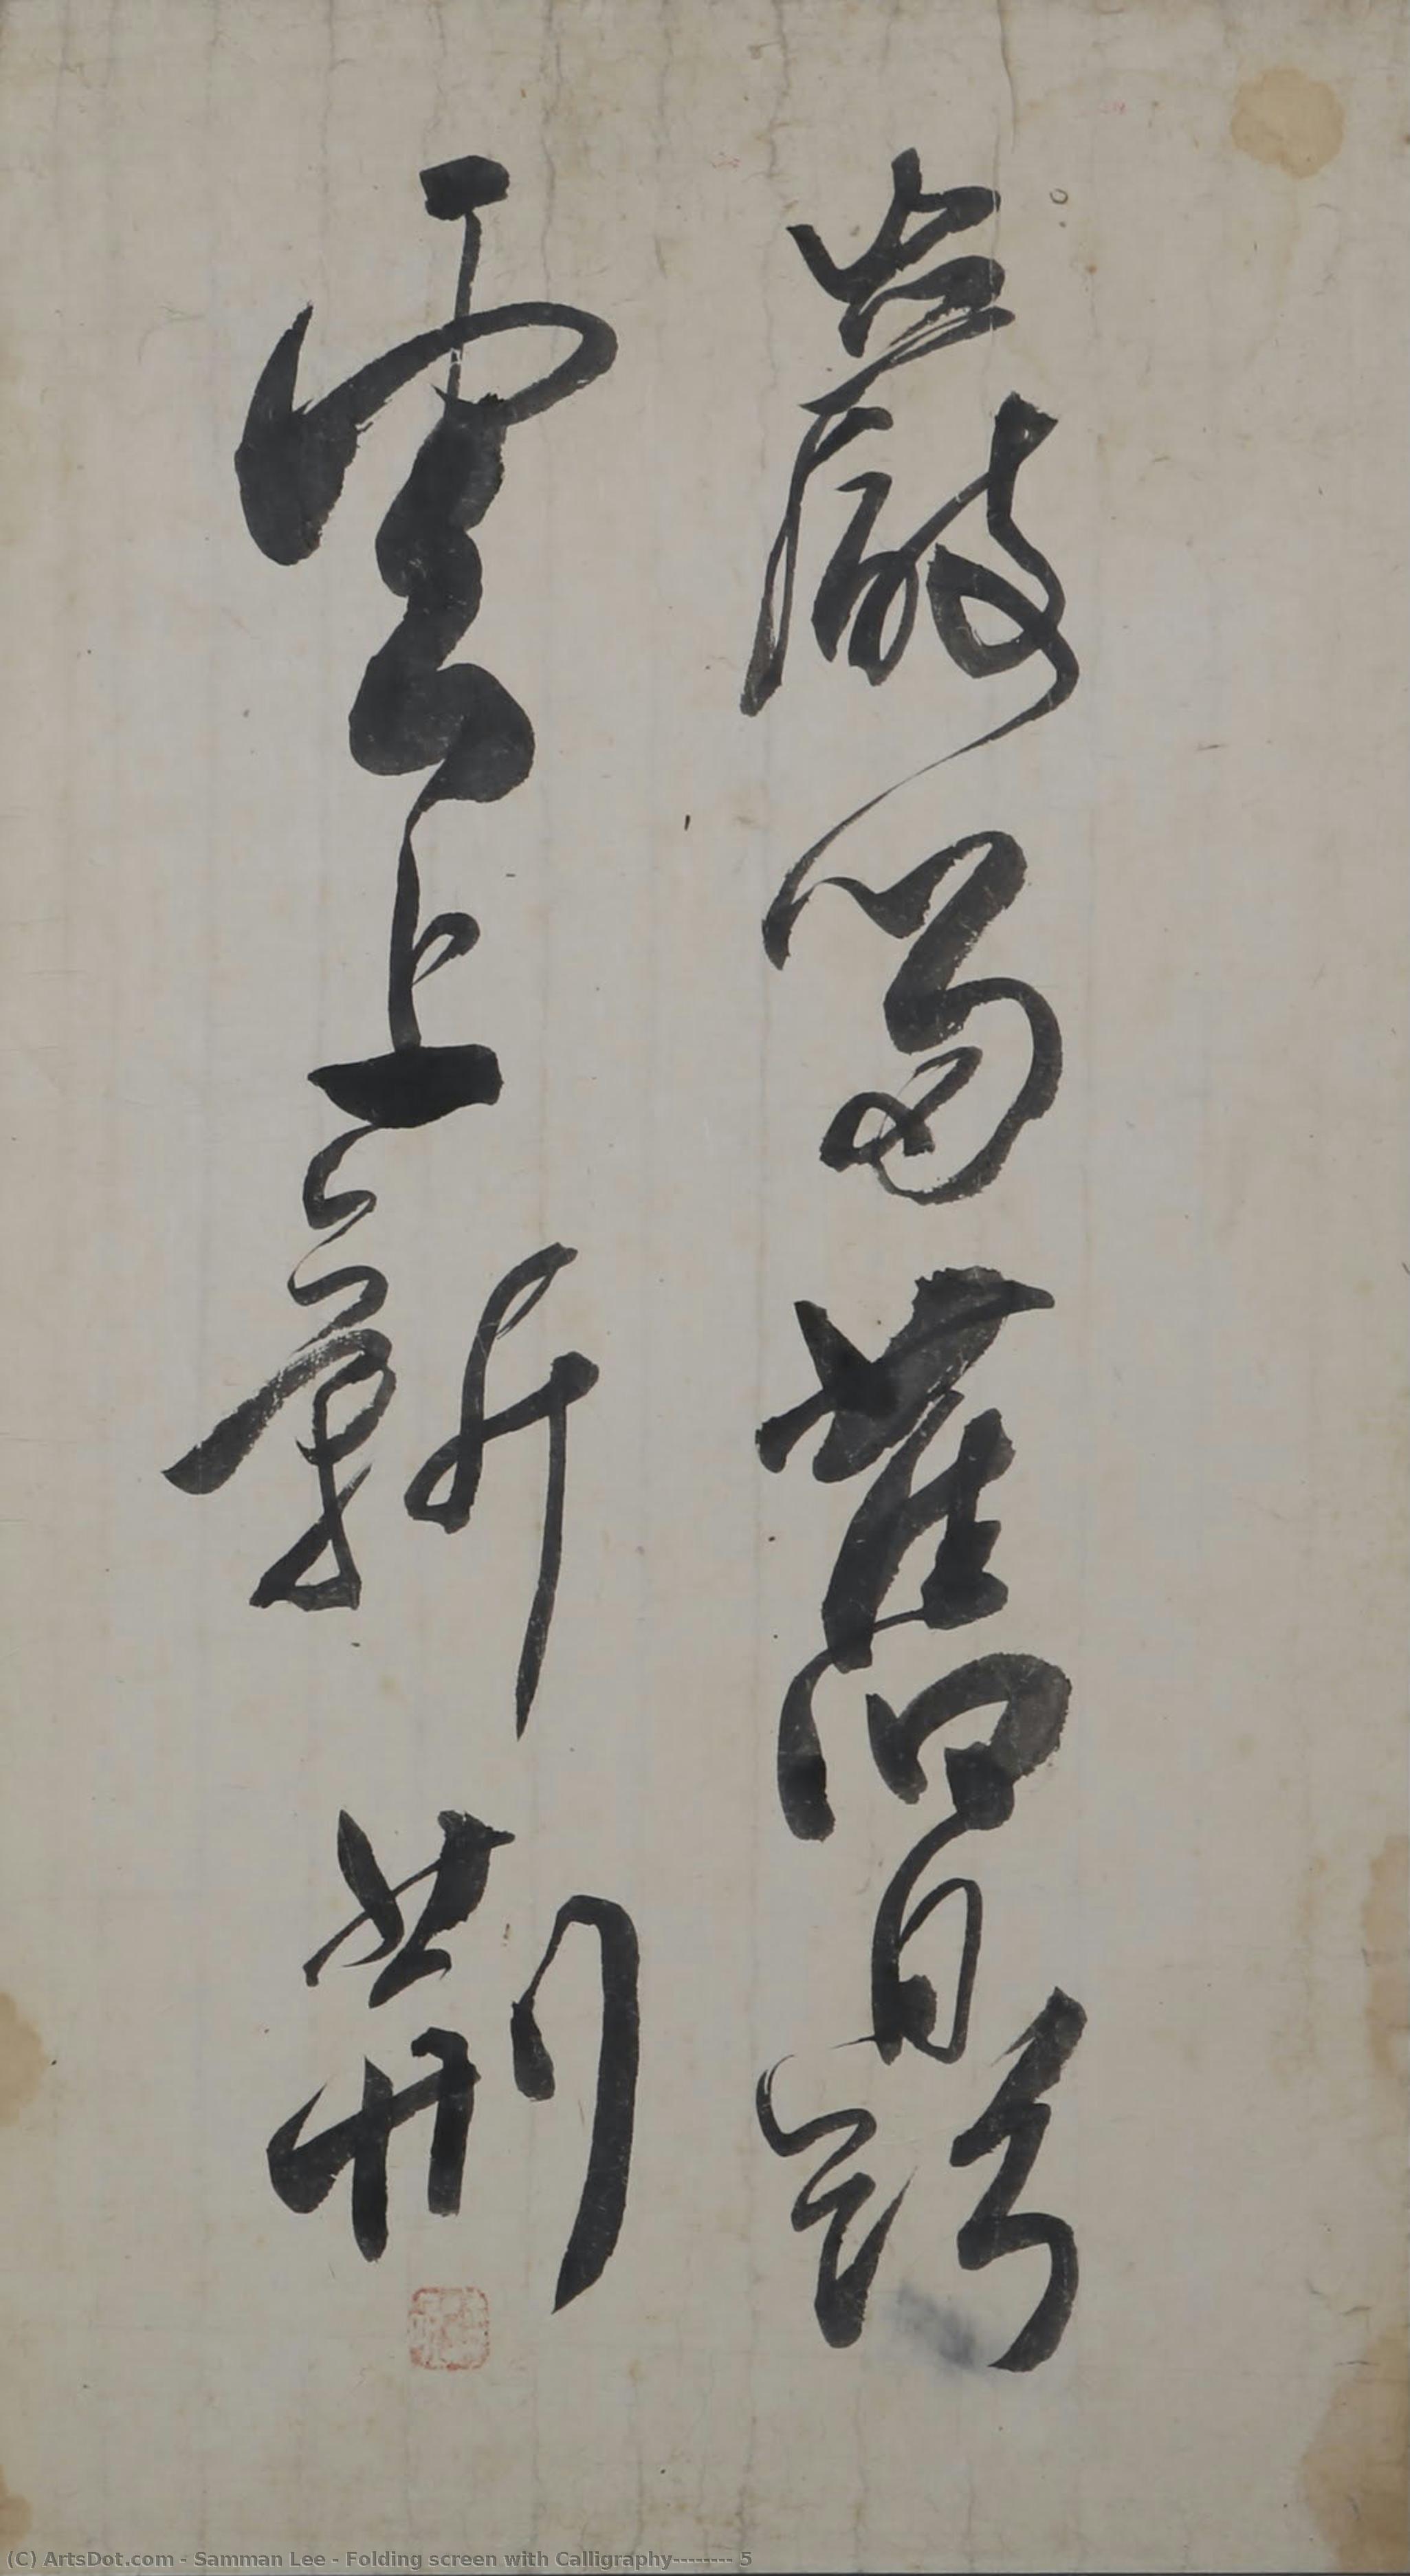 巖留舊日題
雲上新
(C) ArtsDot.com - Samman Lee - Folding screen with Calligraphy-------- 5